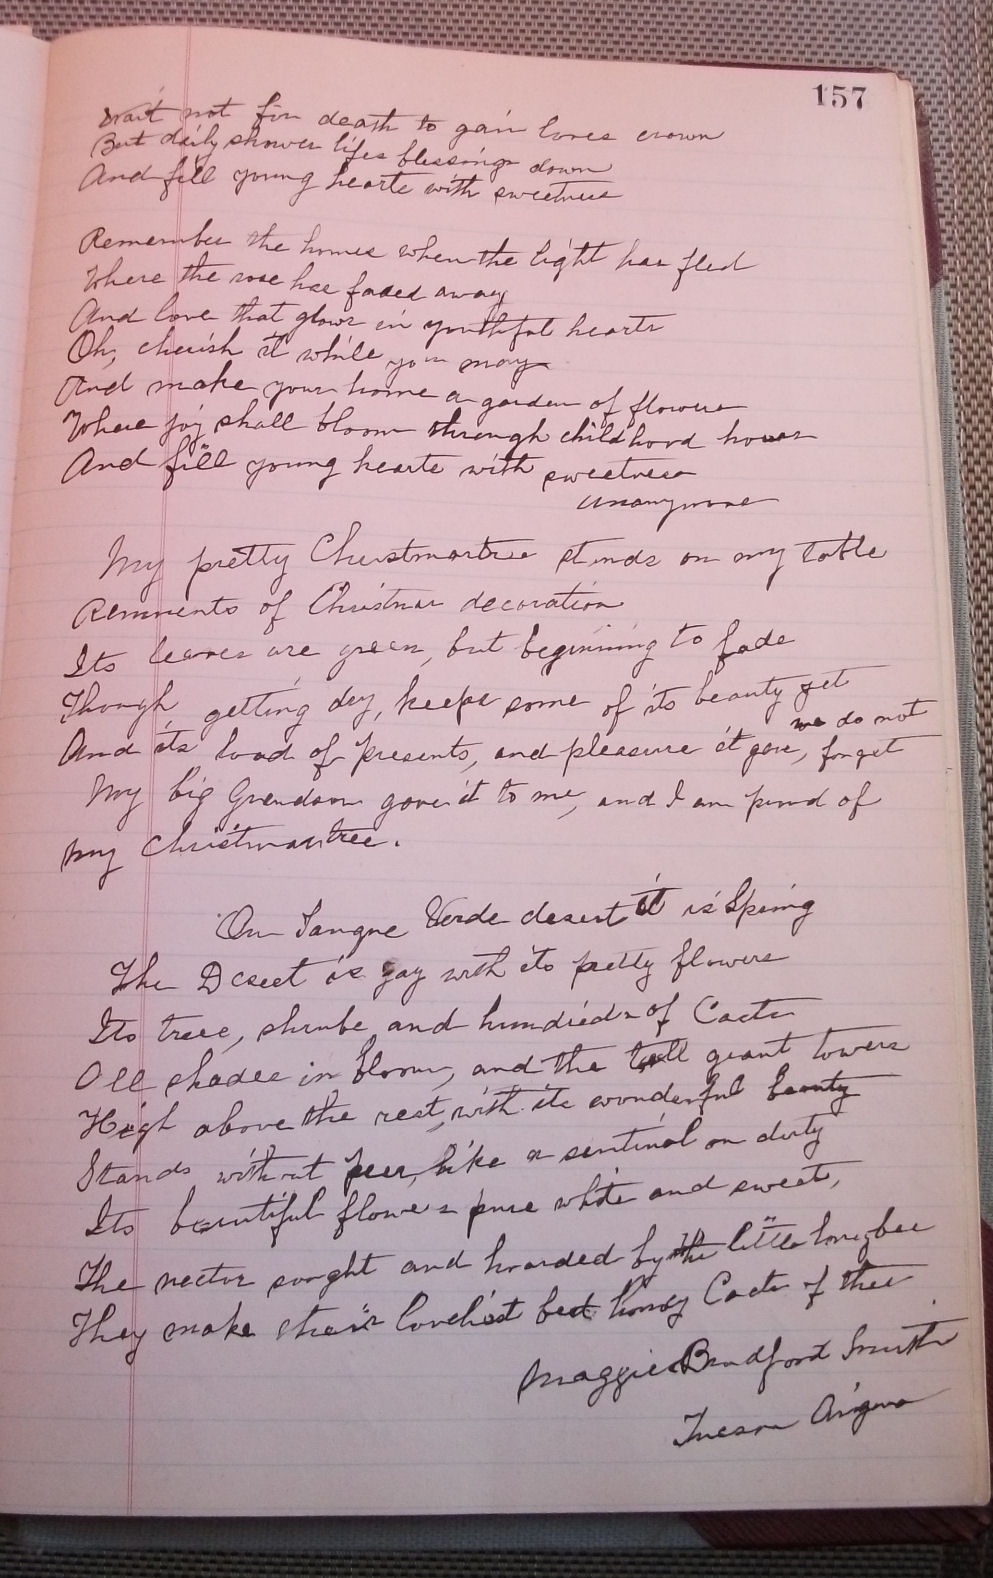 157
Wait not for death to gain loves crown
But daily shower lifes blessings down
And fill young hearts with sweetness
Remember the homes when the light has fled
Where the rose has faded away
And love that glows in youthful hearts
Oh, cherish it while you may
And make your home a garden of flowers
Where joy shall bloom through childhood hours
And fill young hearts with sweetness
My pretty Christmastree stands on my table
Remnents of Christmas decoration
Its leaves are green, but beginning to fade
Though getting dry, keeps some of its beauty yet
And its load of presents, and pleasure it gave, we do not forget
My big Grandson gave it to me, and I am proud of
my Christmastree.
On Tangue Verde desert it is Spring
The Desert is gay with its pretty flowers
Its trees, shrubs, and hundreds of Cacti
All shades in bloom, and the tall giant towers
High above the rest, with its wonderful beauty
Stands without peer, like a sentinal on duty
Its beautiful flowers pure white and sweet,
The nector sought and hoarded by the little honeybee
They make their loveliest best honey Cacti of thee
Maggie Bradford Smith
Tucson Arizona